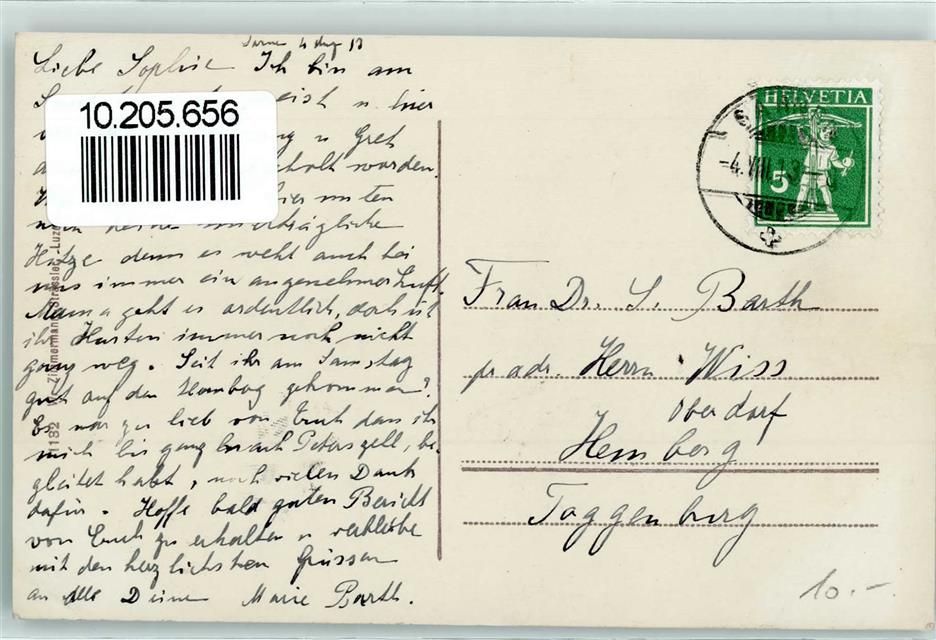 Sarnen 4 Aug 13
Liebe Sophie Ich bin am
gereist u. hier
u Gret
abgeholt worden.
hier unten
noch keine unerträgliche
Hitze denn es weht auch bei
uns immer ein angenehmer Luft.
Mama geht es ordentlich, doch ist
ihr Husten immer noch nicht
ganz weg. Seit ihr am Samstag
gut auf den Hemberg gekommen?
Es war zu lieb von Euch dass ihr
mich bis ganz nach Peterszell, be-
gleitet habt, noch vielen Dank
dafür. Hoffe bald guten Bericht
von Euch zu erhalten u verbleibe
mit den herzlichsten Grüssen
an alle Deine Marie Barth.
10.205.656
Zimmermann Strassle, Luze
HELVETIA
5
-4.VIII.13-
Frau Dr. S. Barth
pr. adr. Herrn Wiss
Oberdorf
Hemberg
Toggenburg
10.-